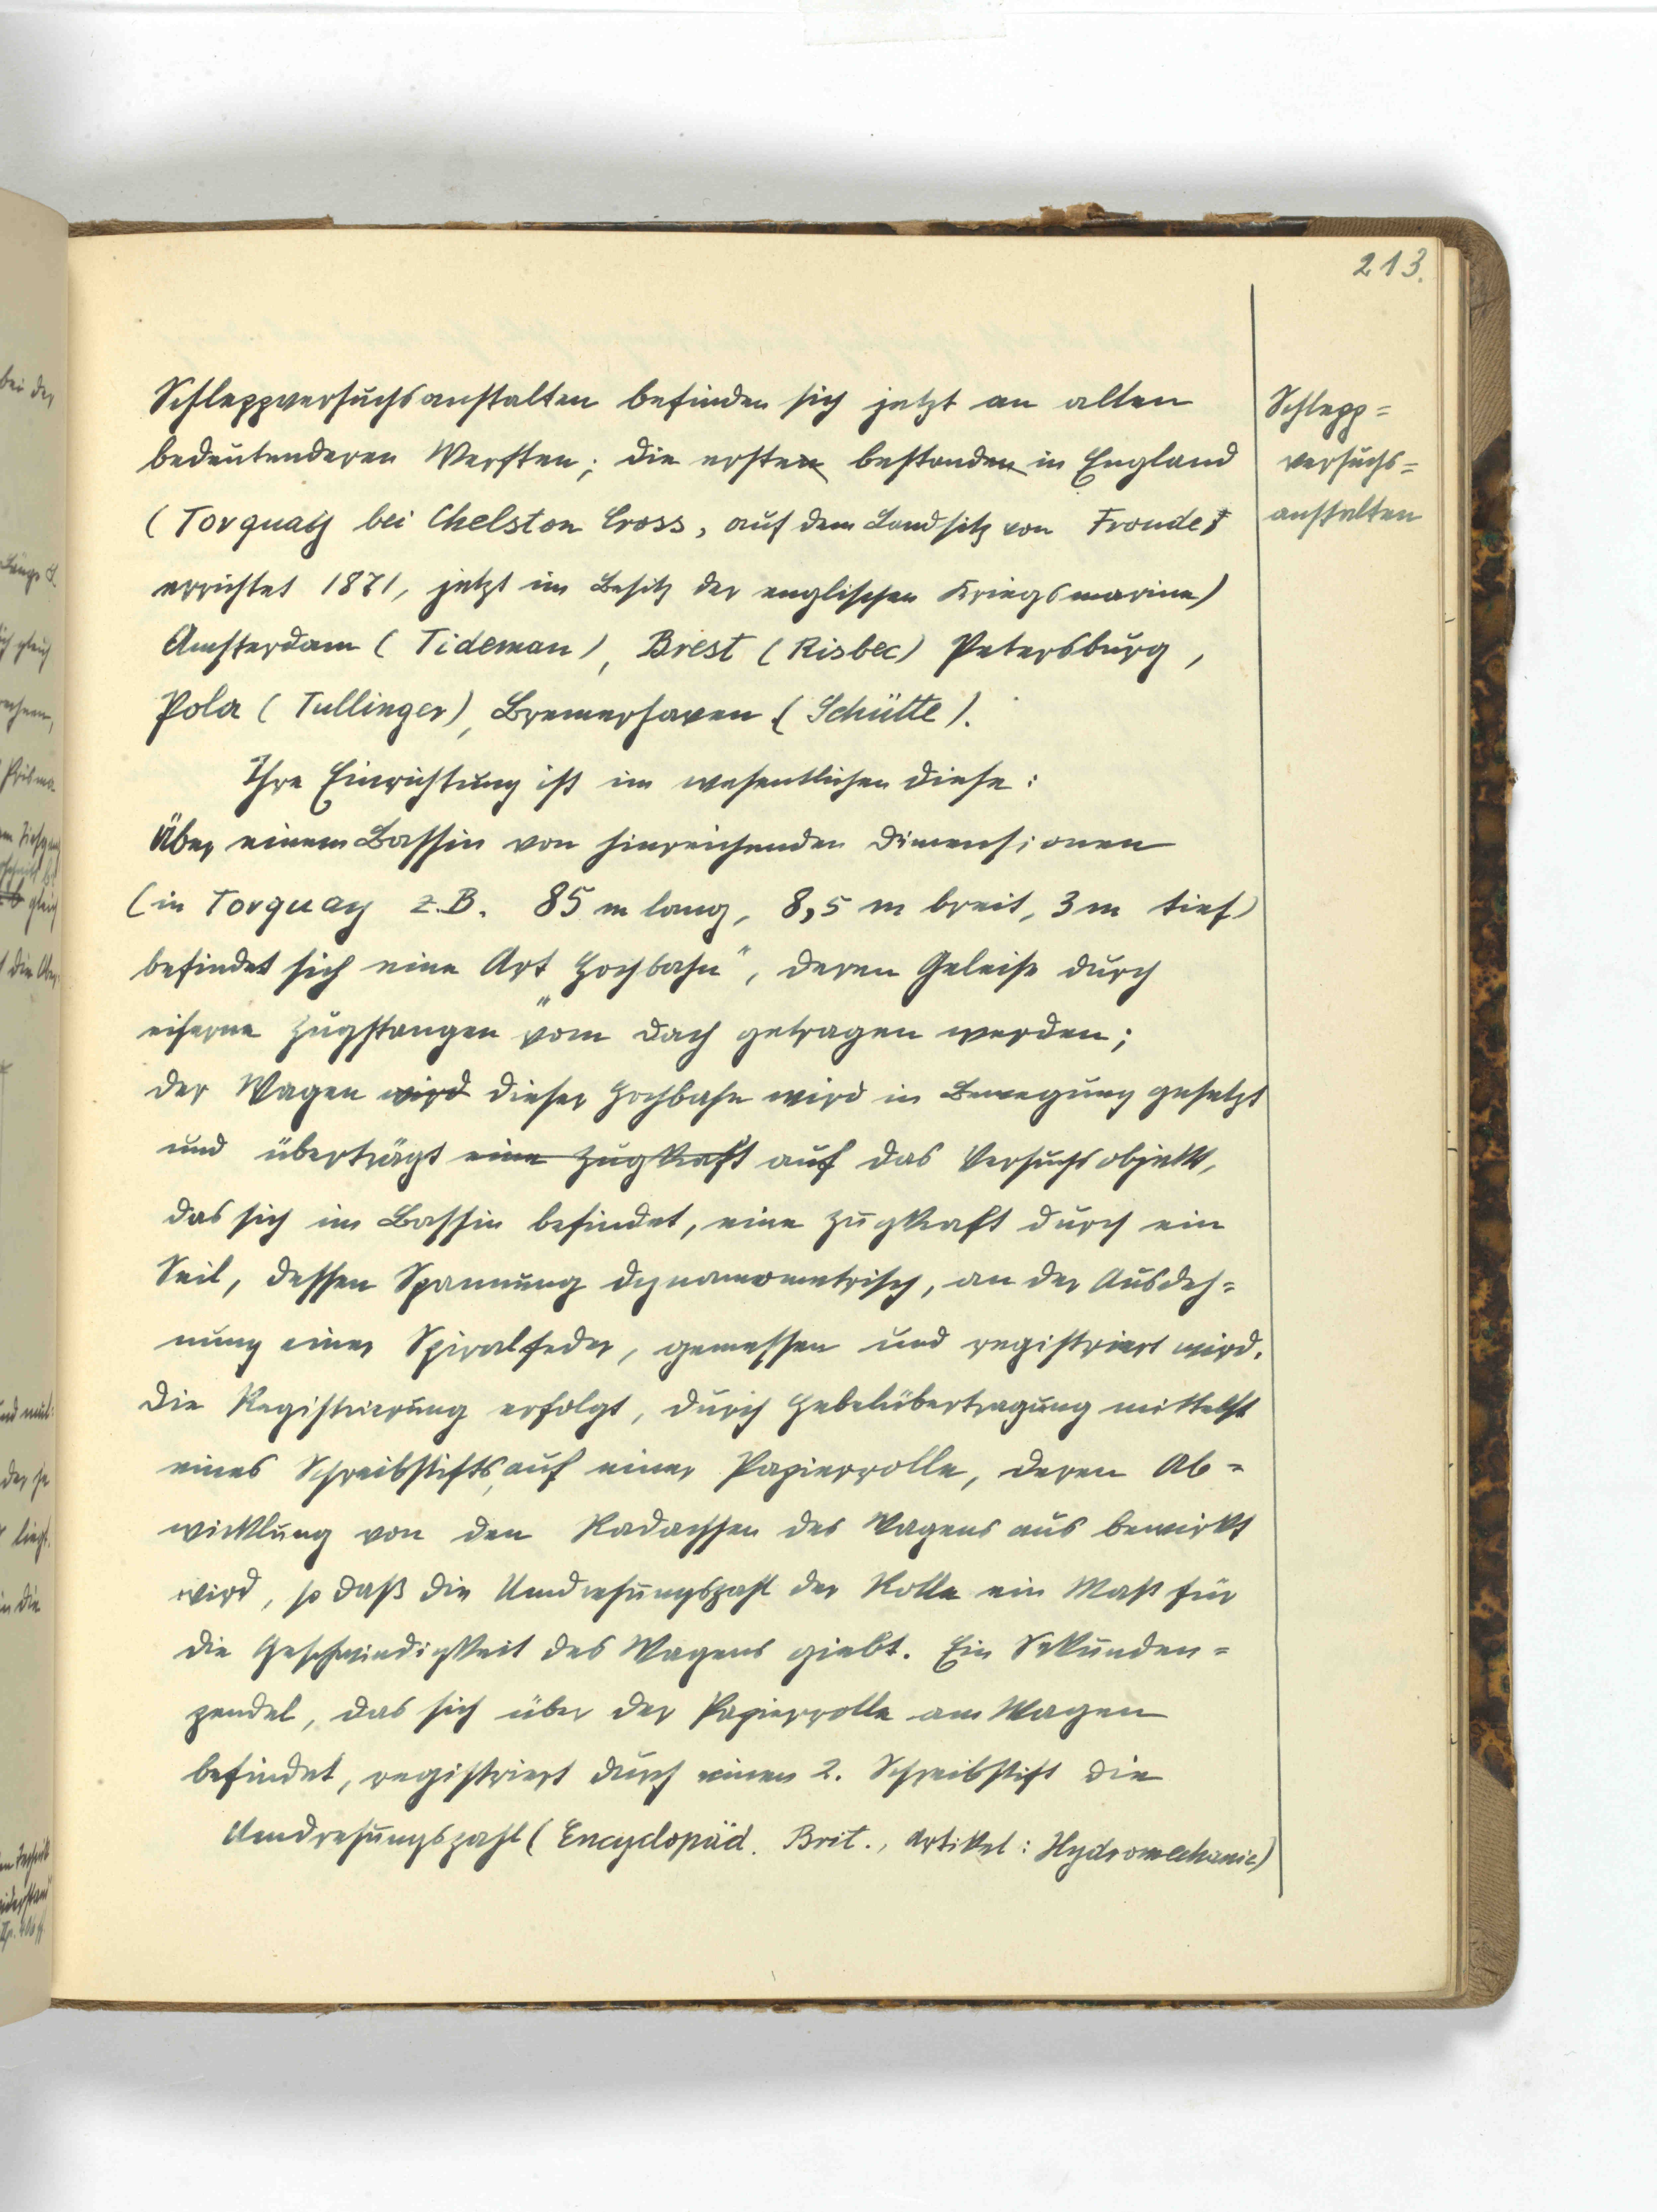 213.
Schleppversuchsanstalten befinden sich jetzt an allen
bedeutenderen Werften; die ersten bestanden in England
(Torquay bei Chelston Cross, auf dem Landsitz von Froude,
errichtet 1871, jetzt im Besitz der englischen Kriegsmarine)
Amsterdam (Tideman), Brest (Risbec) Petersburg,
Pola (Tullinger), Bremerhaven (Schütte).
Ihre Einrichtung ist im wesentlichen diese:
Über einem Bassin von hinreichenden Dimensionen
(in Torquay z.B. 85 m lang, 8,5 m breit, 3 m tief)
befindet sich eine Art „Hochbahn", deren Geleise durch
eiserne Zugstangen vom Dach getragen werden;
der Wagen wird dieser Hochbahn wird in Bewegung gesetzt
und überträgt eine Zugkraft auf das Versuchsobjekt,
das sich im Bassin befindet, eine Zugkraft durch ein
Seil, dessen Spannung dynamometrisch, an der Ausdeh=
nung einer Spiralfeder, gemessen und registriert wird.
Die Registrierung erfolgt, durch Hebelübertragung mittelst
eines Schreibstifts, auf einer Papierrolle, deren Ab=
wicklung von den Radachsen des Wagens aus bewirkt
wird, so daß die Umdrehungszahl der Rolle ein Maß für
die Geschwindigkeit des Wagens giebt. Ein Sekunden=
pendel, das sich über der Papierrolle am Wagen
befindet, registriert durch einen 2. Schreibstift die
Umdrehungszahl (Encyclopäd. Brit., Artikel: Hydromechanic)
Schlepp=
versuchs=
anstalten